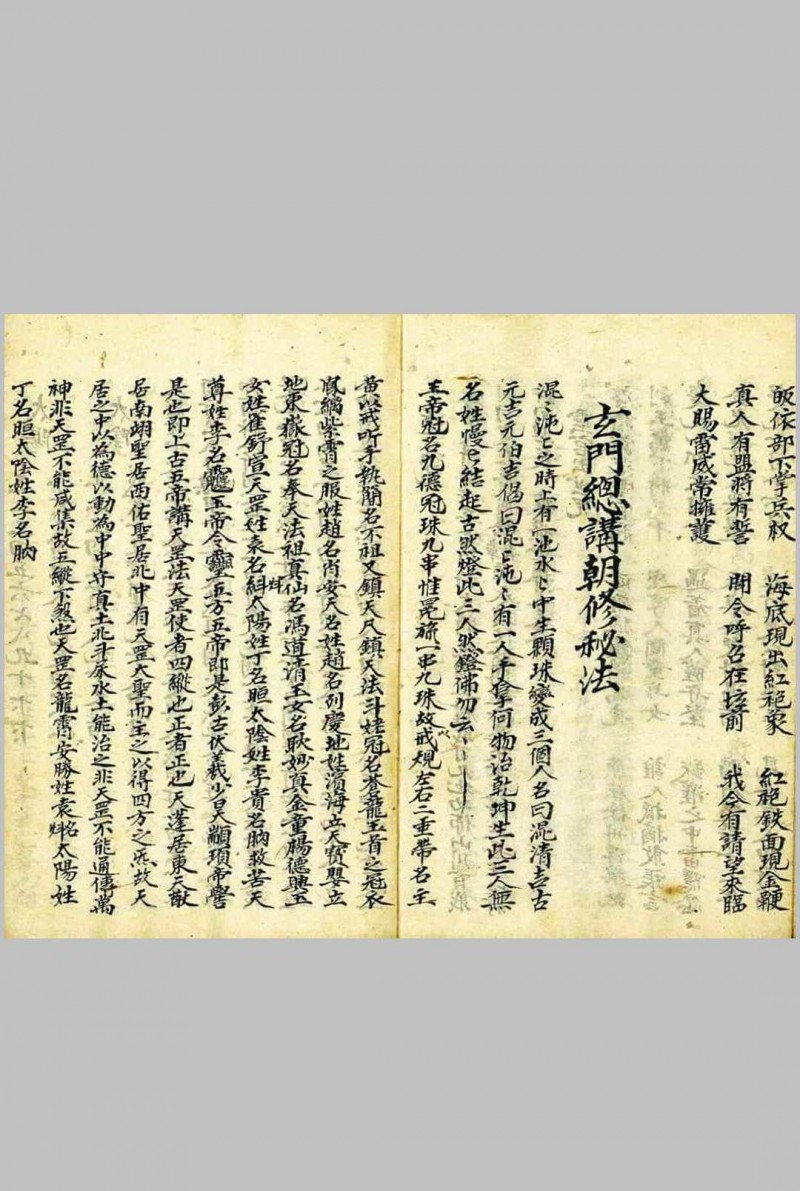 皈依部下掌兵权　海底現出紅袍象　紅袍鉄面現金鞭
真人有盟將有誓　聞令呼召在坛前　我今有請望來臨
大賜雷威常擁護
玄門總講朝修秘法
混〻沌〻之時上有一池水〻中生顆珠變成三個人名曰混清吉古
元吉元伯吉偈曰混〻沌〻有一人手拿何物治乾坤生此三人無
名姓慢〻結起古然燈此三人然燈佛勿云
玉帝冠名九德冠珠九串惟冕旒一串九珠故戒規左右二重帶名主
黄以戒听手執簡名不祖又鎮天尺鎮天法斗姥冠名蒼龍玉首之冠衣
鳳綉紫霄之服姓趙名肖安天名姓趙名列慶地姓濱海立天寶嬰立
地東嶽冠名奉天法祖真仙名馮道清玉女名耿妙真金童楊德聰玉
女姓崔舒宣天罡姓袁名斜太陽姓丁名晅太陰姓李貴名肭救苦天
尊姓李名靈玉帝令靈五方五帝即是彭古伏羲少昊天顓頊帝嚳
是也即上古五帝講天罡法天罡使者四縱也正者正也天蓬居東天猷
居南翊聖居西佑聖居北中有天罡大聖而主之以得四方之炁故天
居之中以為德以動為中中守真土北斗屬水土能治之非天罡不能通傳萬
神非天罡不能咸集故五縱下煞也天罡名龍霄安勝姓袁名太陽姓
丁名晅太陰姓李名肭